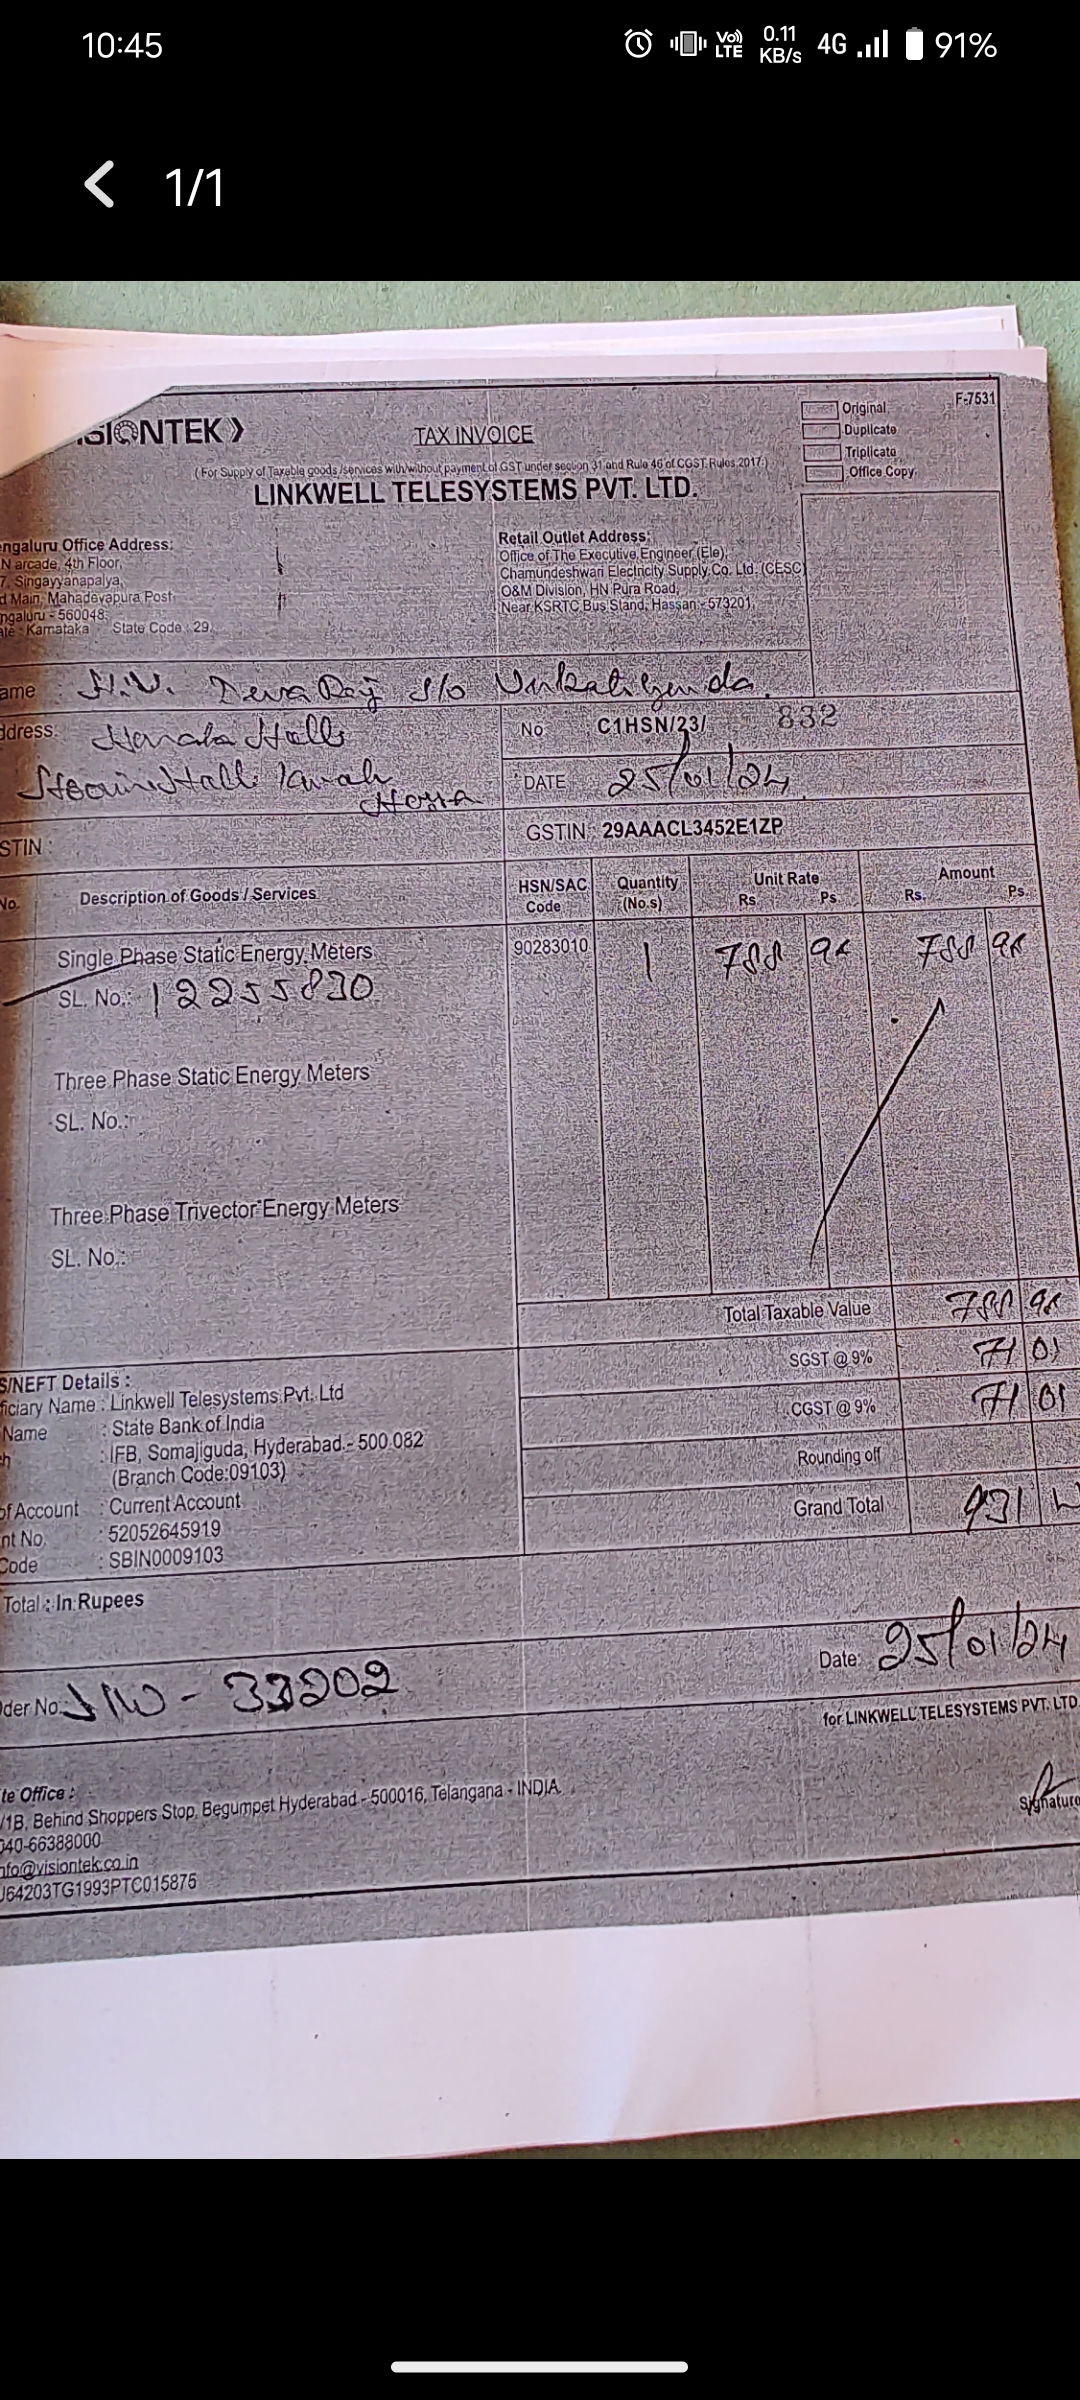 10:45
Vo)) LTE 0.11 KB/s 4G 91%
1/1
F-7531
Original
Duplicate
Triplicate
Office Copy
SIONTEK
TAX INVOICE
(For Supply of Taxable goods /services with/without payment of GST under section 31 and Rule 46 of CGST Rules 2017)
LINKWELL TELESYSTEMS PVT. LTD.
engaluru Office Address:
N arcade, 4th Floor,
7, Singayyanapalya,
d Main, Mahadevapura Post
ngaluru - 560048.
ate : Karnataka State Code : 29
Retail Outlet Address:
Office of The Executive Engineer (Ele),
Chamundeshwari Electricity Supply Co. Ltd. (CESC
O&M Division, HN Pura Road,
Near KSRTC Bus Stand, Hassan - 573201
ame : H.V. Deva Raj S/o
ddress:
No C1HSN/23/ 832
DATE 25/01/24
STIN :
GSTIN: 29AAACL3452E1ZP
No. Description of Goods / Services HSN/SAC Code Quantity (No.s) Unit Rate Rs. Ps. Amount Rs. Ps.
Single Phase Static Energy Meters 90283010 1 788 98 788 98
SL. No.: 12255830
Three Phase Static Energy Meters
SL. No.:
Three Phase Trivector Energy Meters
SL. No.:
Total Taxable Value 788 98
SGST @ 9% 71 01
CGST @ 9% 71 01
Rounding off
Grand Total 931
S/NEFT Details :
ficiary Name : Linkwell Telesystems Pvt. Ltd
Name : State Bank of India
h : IFB, Somajiguda, Hyderabad - 500 082
(Branch Code:09103)
of Account : Current Account
nt No. : 52052645919
Code : SBIN0009103
Total : In Rupees
Date: 25/01/24
der No: - 33202
for LINKWELL TELESYSTEMS PVT. LTD
Signature
te Office :
/1B, Behind Shoppers Stop, Begumpet Hyderabad - 500016, Telangana - INDIA
040-66388000
nfo@visiontek.co.in
J64203TG1993PTC015875